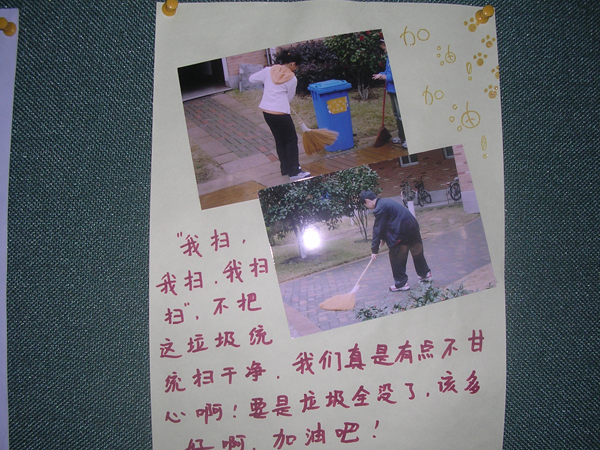 加油!
加油!
"我扫,
我扫.我扫
扫",不把
这垃圾统
统扫干净.我们真是有点不甘
心啊!要是垃圾全没了,该多
好啊.加油吧!